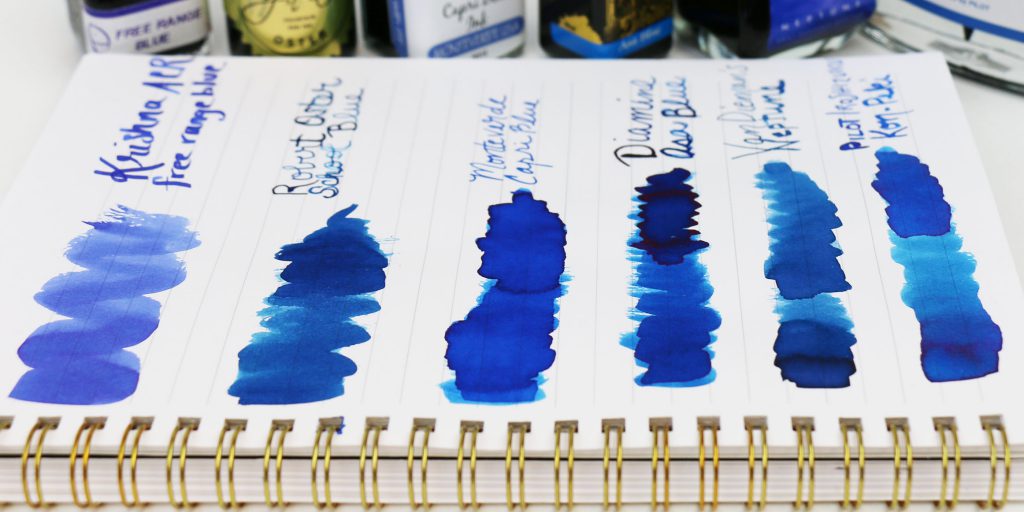 FREE RANGE
BLUE
Capri Blue
Ink
Asa Blue
NEPTUNE
Krishna
free range blue
Robert Oster
School Blue
Monteverde
Capri Blue
Diamine
Asa Blue
Van Dieman's
Neptune
Pilot
Kon-Peki